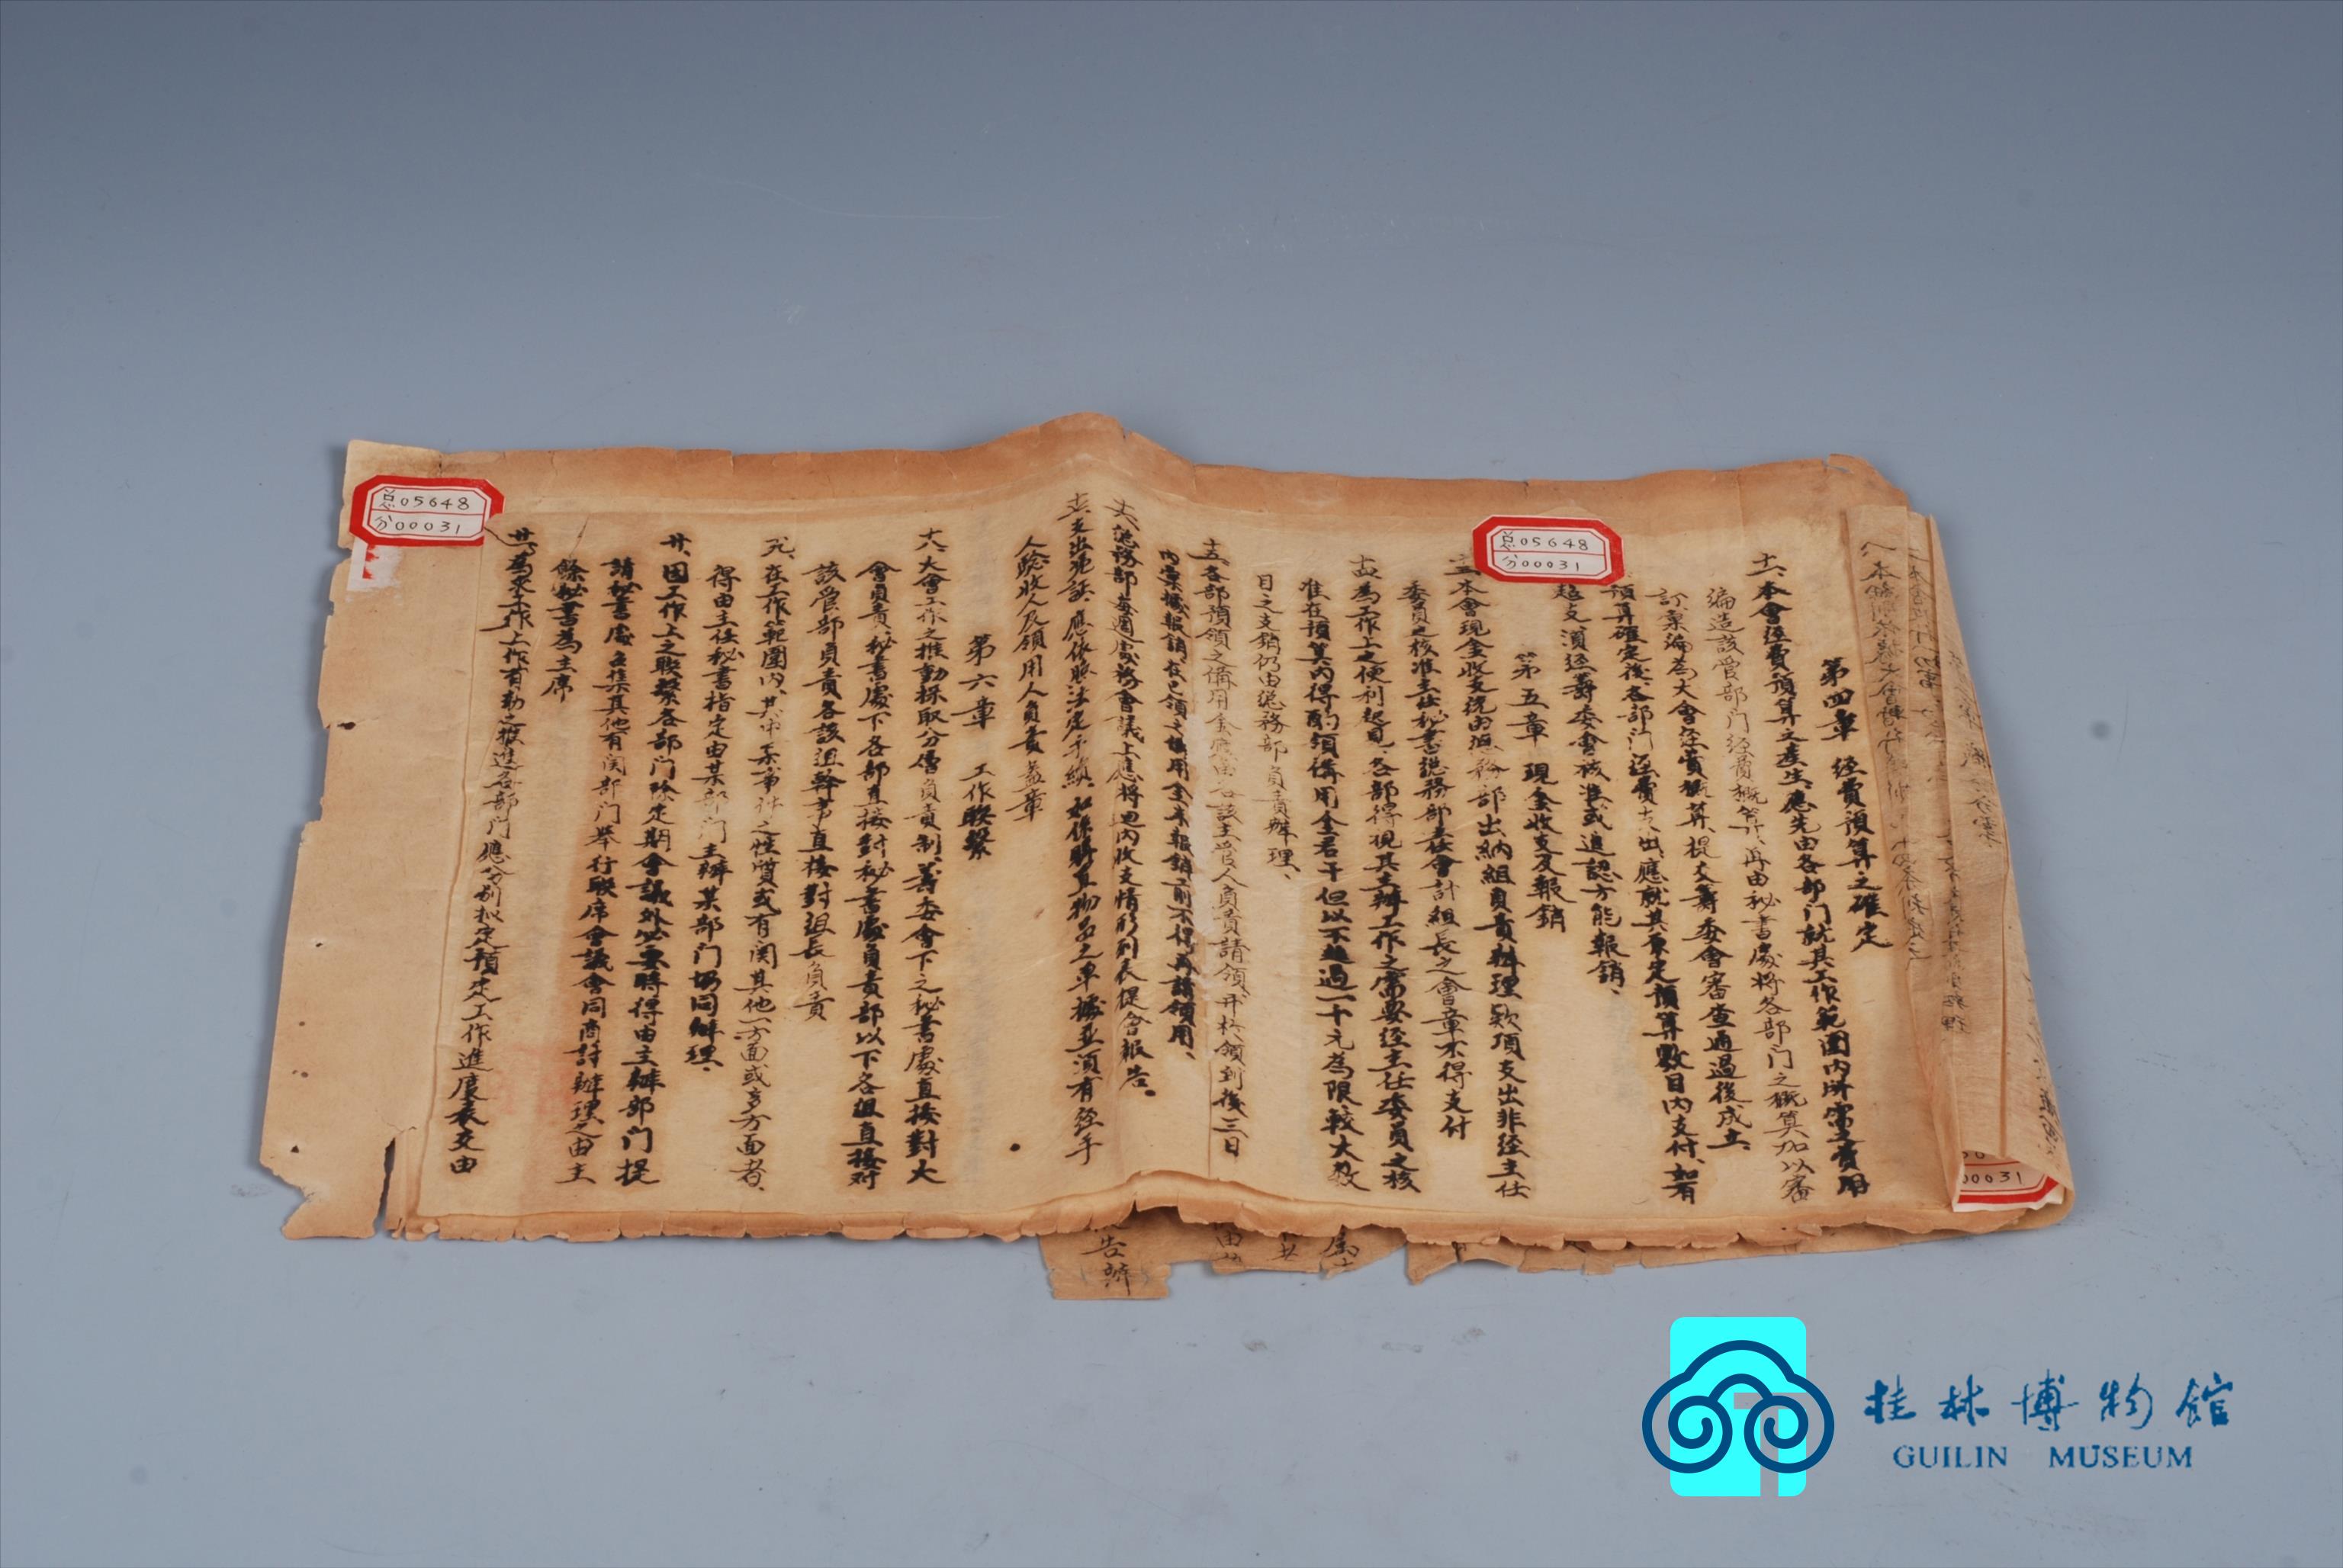 第四章 經費預算之確定
十一、本會經費預算之產生、應先由各部门就其工作範圍内所需之費用
編造該管部门經費概算、再由秘書處將各部门之概算加以審
訂彙編為大會經費概算、提交籌委會審查通過後成立、
預算確定後、各部门經費支出、應就其原定預算數目内支付、如有
超支、須經籌委會核准或追認方能報銷、
第五章 現金收支及報銷
本會現金收支統由總務部出納組負責辦理欵項支出非經主任
委員之核准主任秘書總務部長會計組長之會章不得支付
十四、為工作上之便利起見、各部得視其主辦工作之需要經主任委員之核
准在預算内得酌領備用金若干但以不超過一千元為限較大數
目之支銷仍由總務部負責辦理、
十五、各部預領之備用金應由各該主管人負責請領、并於領到後三日
内彙據報銷、在已領之備用金未報銷前不得再請領用、
十六、總務部每週處務會議上應將週内收支情形列表提會報告。
十七、支出憑証、應依照法定手續、如係購置物品之单據並須有經手
人驗收人及領用人負責蓋章
第六章 工作联繫
十八、大會工作之推動採取分層負責制、籌委會下之秘書處直接對大
會負責、秘書處下各部直接對秘書處負責部以下各組直接對
該管部負責各該組幹事直接對組長負責
九、在工作範圍内、其中某事件之性質或有関其他一方面或多方面者、
得由主任秘書指定由某部门主辦某部门協同辦理、
廿、因工作上之联繫各部门除定期會議外必要時得由主辦部门提
請秘書處召集其他有関部门舉行联席會議會同商討辦理之由主
任秘書為主席
廿一、為求工作上作有効之推進各部门應分别拟定預定工作進度表交由
总05648
分00031
总05648
分00031
00031
告辦
桂林博物館
GUILIN MUSEUM